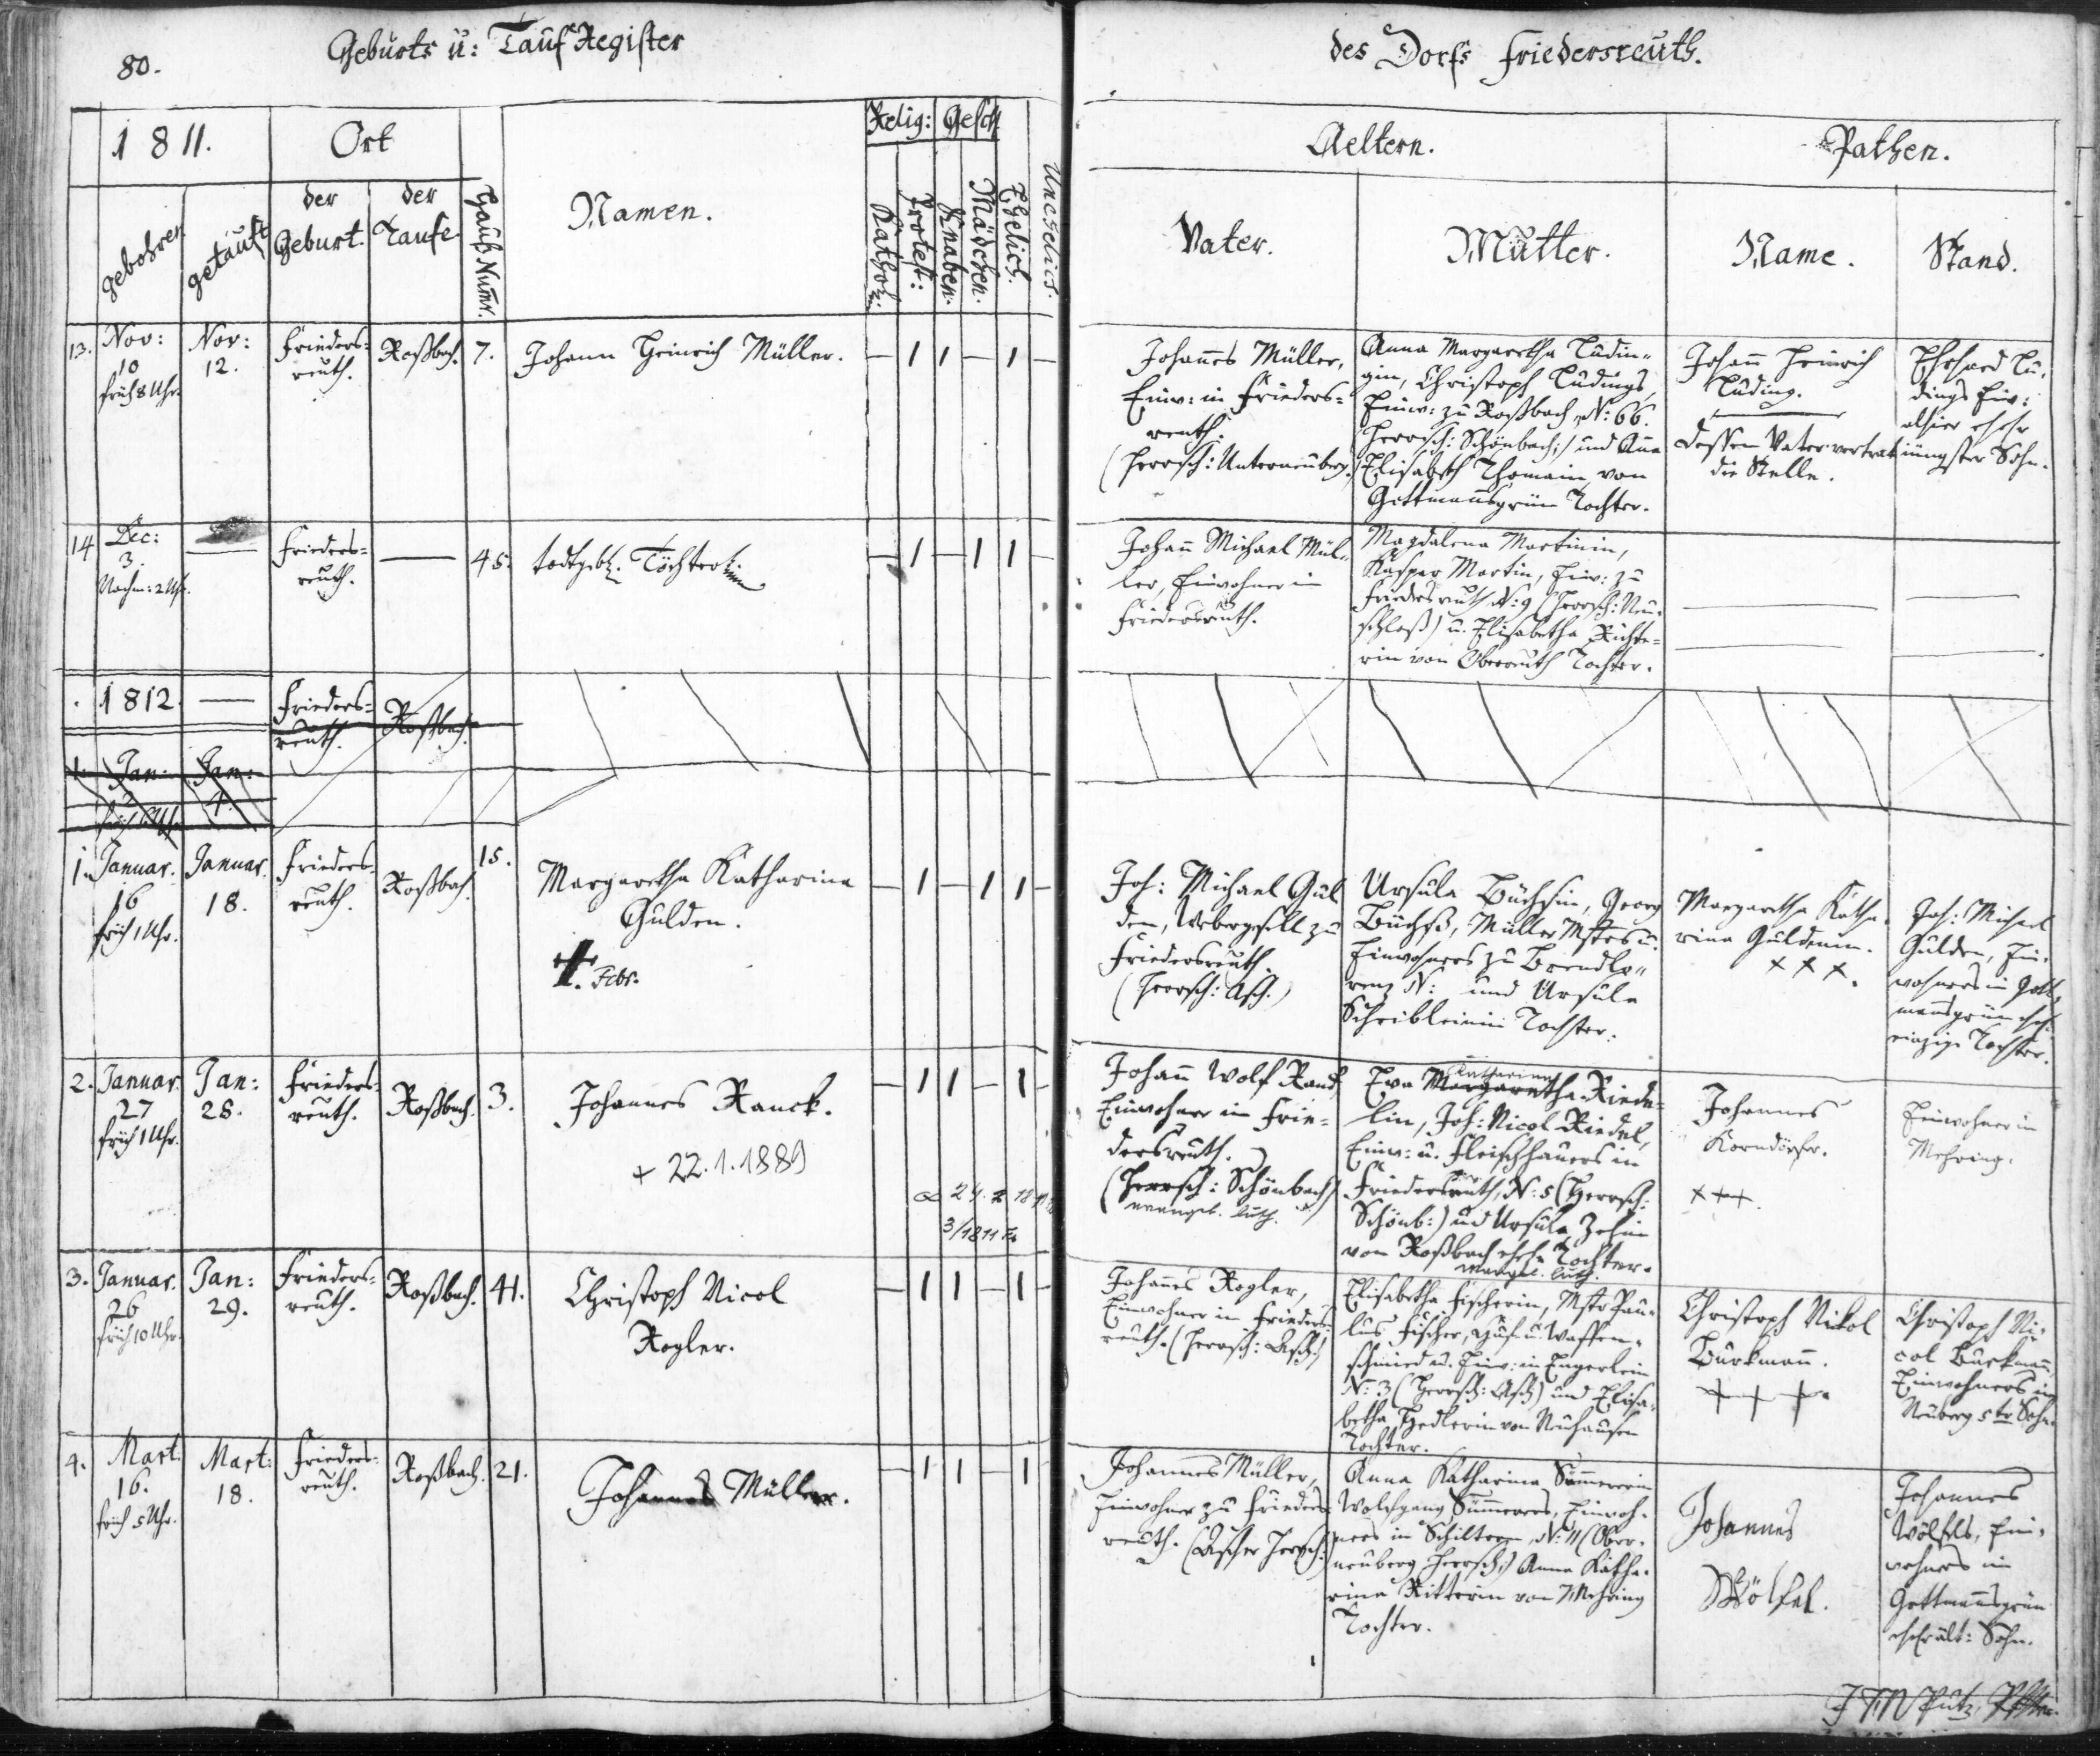 80.
Geburts u: Tauf Register
des Dorfs Friedersreuth.
1811.
Ort
Namen.
Relig:
Gesch
Aeltern.
Pathen.
gebohren
getauft
der Geburt.
der Taufe.
Hauß Numr.
Kathol:
Protest:
Knaben.
Mädchen.
Ehelich.
Unehelich.
Vater.
Mutter.
Name.
Stand.
13.
Nov:
10
früh 8 Uhr.
Nov:
12.
Frieders=
reuth.
Roßbach.
7.
Johann Heinrich Müller.
Johañes Müller,
Einw: in Frieders=
reuth.
(Herrsch: Unterneuberg.)
Anna Margaretha Ludin=
gin, Christoph Ludings,
Einw: zu Roßbach N: 66.
(Herrsch: Schönbach;) und Aña
Elisabeth Thomain von
Gottmañsgrün Tochter.
Johañ Heinrich
Luding.
Dessen Vater vertrat
die Stelle.
Ehrhard Lu=
dings Einw:
allhier ehelr
jüngster Sohn.
14
Dec:
3.
Nachm: 2 Uhr.
Frieders=
reuth.
45.
todtgeb. Töchterlein
Johañ Michael Mül=
ler, Einwohner in
Friedersreuth.
Magdalena Martinin,
Kasper Martin, Einw: zu
Friedersreuth N: 9 (Herrsch: Neu=
schloß) u. Elisabetha Richte=
rin von Oberreuth Tochter.
1812.
Frieders=
reuth.
Roßbach.
1.
Jan:
Jan:
4.
1.
Januar.
16
früh 1 Uhr.
Januar.
18.
Frieders=
reuth.
Roßbach.
15.
Margaretha Katharina
Gulden.
1. Febr.
Joh: Michael Gul
den, Webergesell zu
Friedersreuth.
(Herrsch: Asch.)
Ursula Büchsin, Georg
Büchß, Müller Mstrs u.
Einwohners zu Brendlo=
renz N: und Ursula
Schribleinin Tochter.
Margaretha Katha=
rina Guldenin.
+ + +.
Joh: Michael
Gulden, Ein=
wohners in Gott=
mañsgrün ehel.
einzige Tochter.
2.
Januar.
27
früh 1 Uhr.
Jan:
28.
Frieders=
reuth.
Roßbach.
3.
Johannes Ranck.
+ 22.1.1889
Johañ Wolf Ranck,
Einwohner in Frie=
dersreuth.
(Herrsch: Schönbach)
evangel. luth.
Katharina
Eva Margaretha Riede=
lin, Joh: Nicol Riedel,
Einw: u. Fleischhauers in
Friedersreuth, N: 5 (Herrsch:
Schönb:) und Ursula Zehin
von Roßbach ehel: Tochter.
evangel. luth.
Johannes
Korndörfer.
+++.
Einwohner in
Mehring.
3.
Januar.
26
früh 10 Uhr.
Jan:
29.
Frieders=
reuth.
Roßbach.
41.
Christoph Nicol
Rogler.
Johañes Rogler,
Einwohner in Frieders=
reuth. (Herrsch: Asch)
Elisabetha Fischerin, Mstr Pau=
lus Fischer, Huf u. Waffen=
schmied u. Einw: in Engerlein
N: 3 (Herrsch: Asch) und Elisa=
betha Hedlerin von Neuhausen
Tochter.
Christoph Nikol
Burkmañ.
+ + +.
Christoph Ni=
col Burkmañ,
Einwohners in
Neuberg 5ter Sohn.
4.
Mart.
16.
früh 5 Uhr.
Mart:
18.
Frieders=
reuth.
Roßbach.
21.
Johannes Müller.
Johannes Müller,
Einwohner zu Frieders=
reuth. (Ascher Herrsch:)
Anna Katharina Sümmererin
Wolfgang Sümmerers, Einwoh=
ners in Schiltern, N: 11 (Ober=
neuberg Herrsch:) Anna Katha=
rina Ritterin von Mehring
Tochter.
Johannes
Wölfel.
Johannes
Wölfels, Ein=
wohners in
Gottmañsgrün
ehelr ält: Sohn.